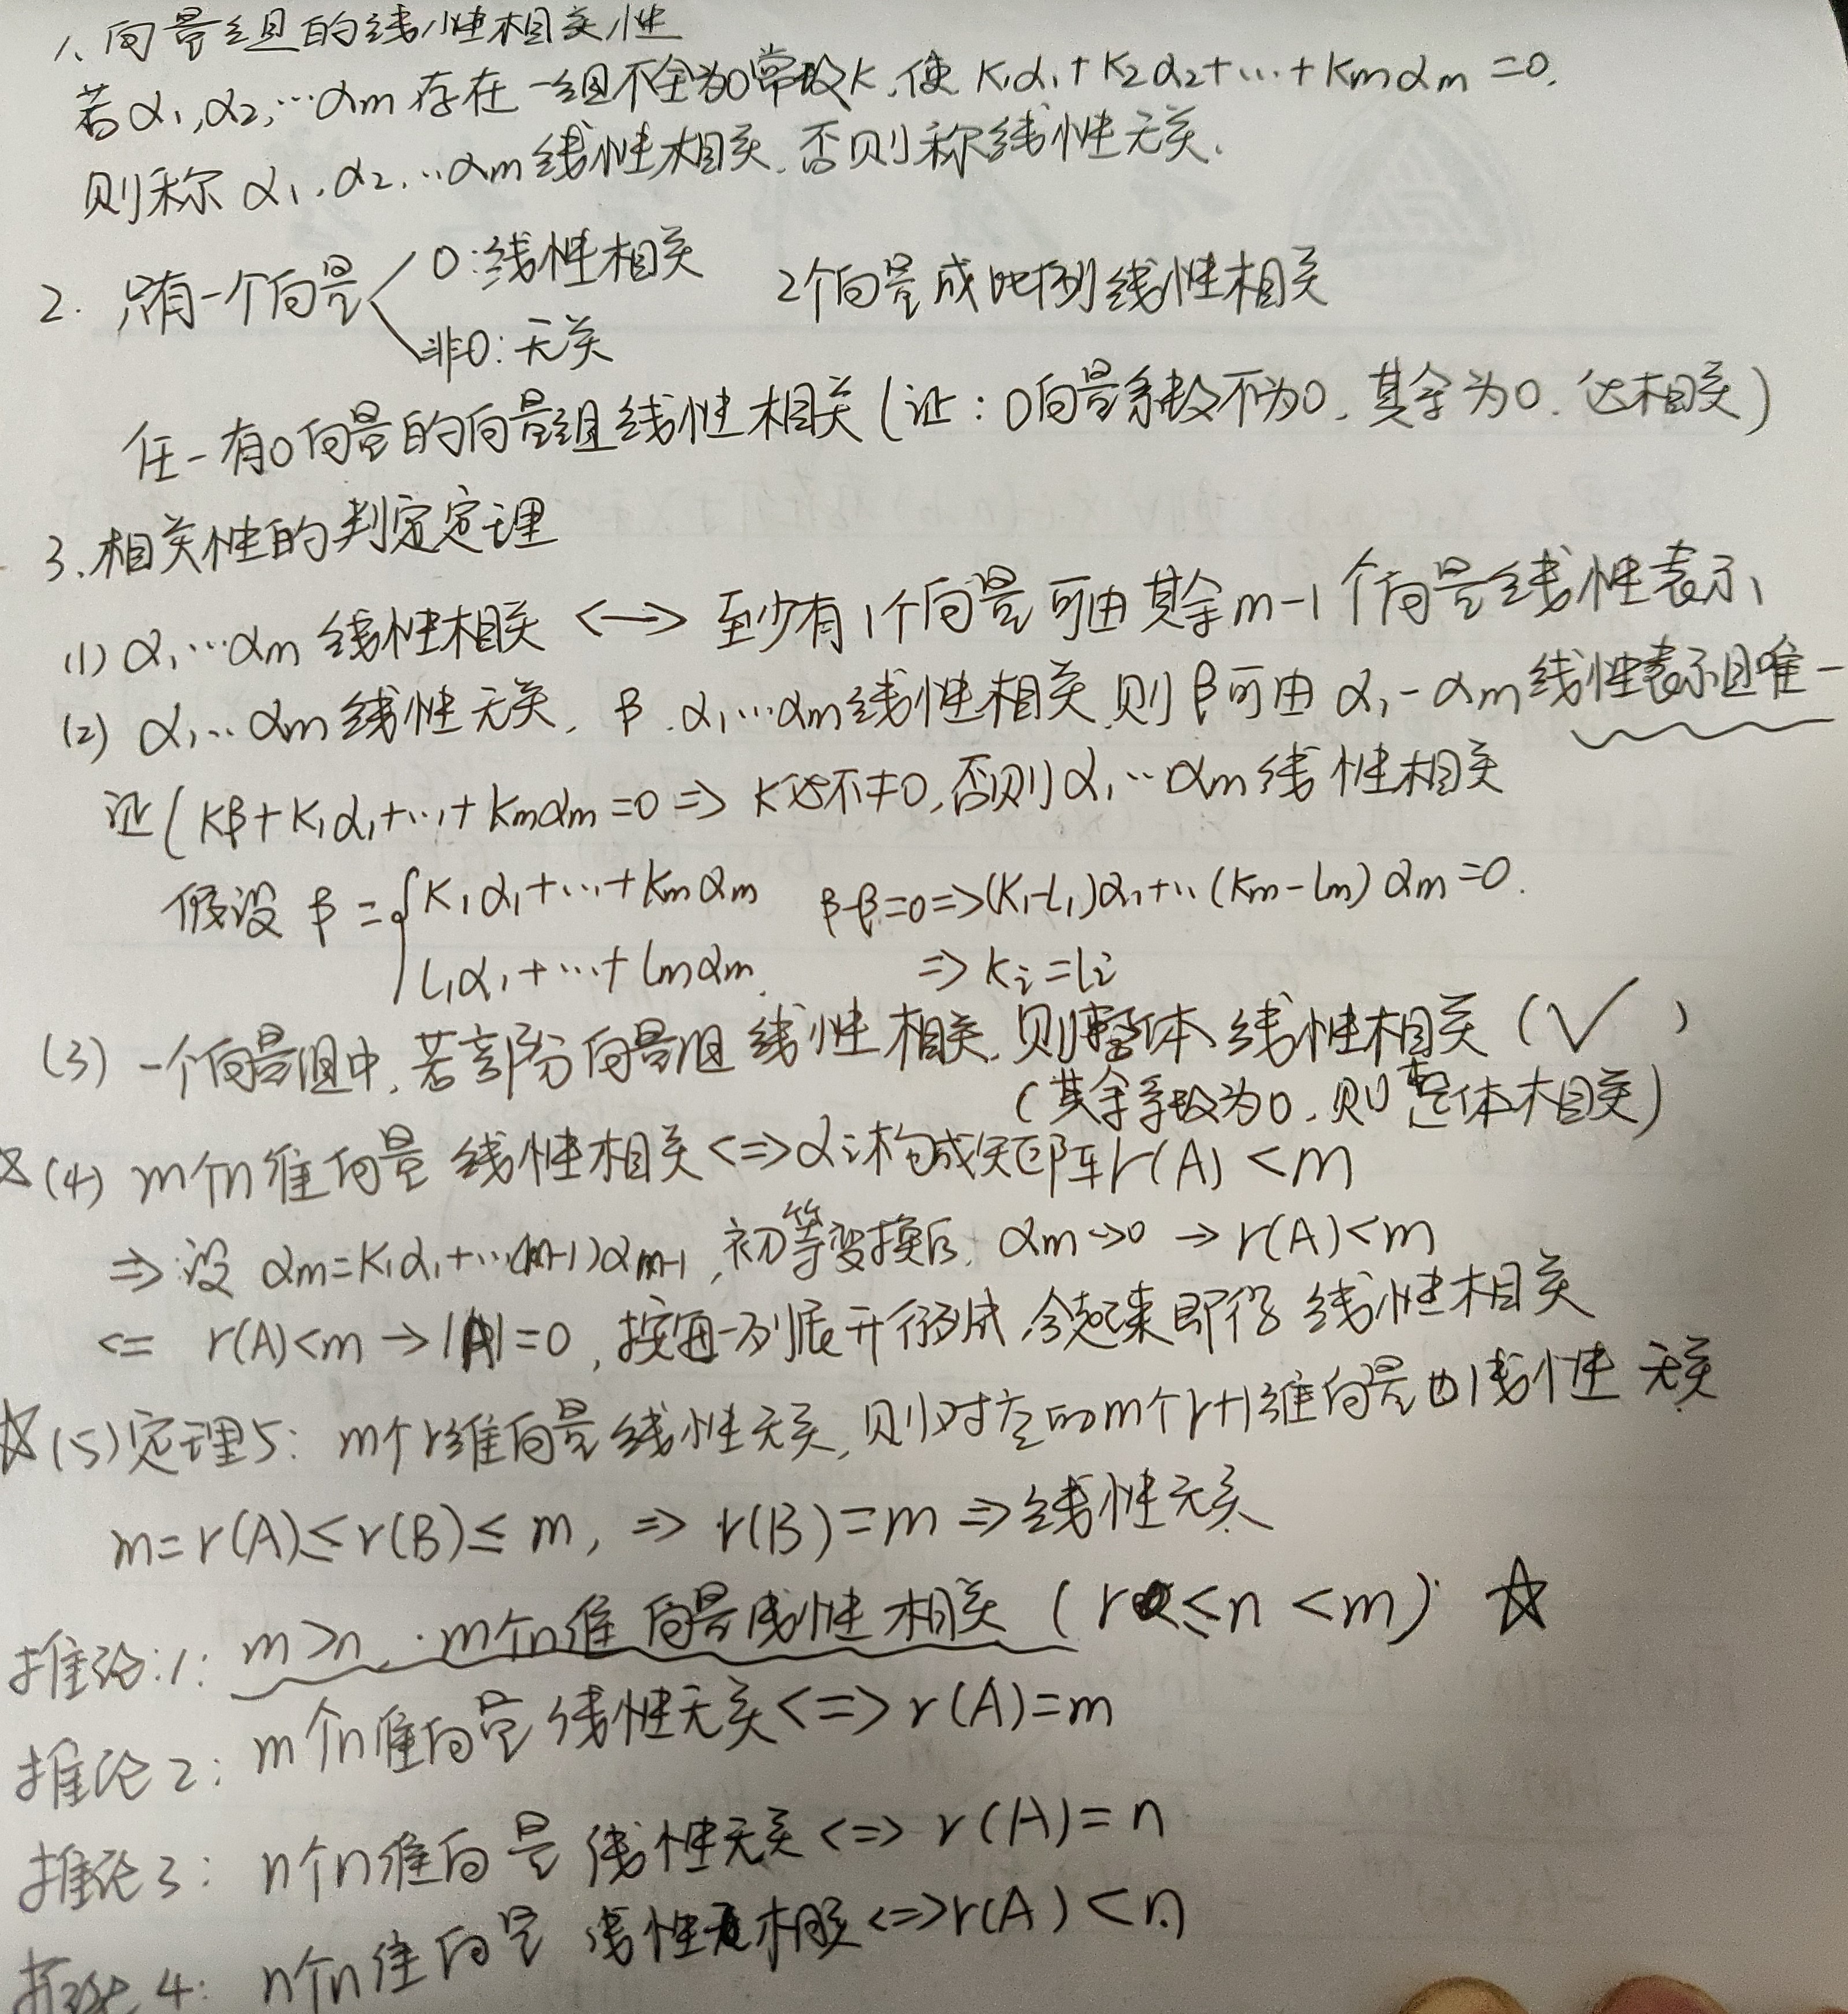 1、向量组的线性相关性
若α1,α2,…αm 存在一组不全为0常数K,使 K1α1+K2α2+…+Kmαm=0.
则称 α1,α2,…αm 线性相关.否则称线性无关.
2. 只有一个向量 0:线性相关 2个向量成比例线性相关
非0:无关
任一有0向量的向量组线性相关(证:0向量系数不为0,其余为0.必相关)
3.相关性的判定定理
(1) α1…αm 线性相关 <—> 至少有1个向量可由其余m-1个向量线性表示
(2) α1…αm 线性无关, β.α1…αm线性相关,则β可由 α1-αm线性表示且唯一
证(Kβ+K1α1+…+Kmαm=0 => K必不=0,否则α1…αm 线性相关
假设 β={K1α1+…+Kmαm β-β=0=>(K1-l1)α1+…(Km-lm)αm=0.
l1α1+…+lmαm. => Ki=li
(3) 一个向量组中,若部分向量组线性相关,则整体线性相关(√)
(其余系数为0,则整体相关)
☆(4) m个n维向量 线性相关<=>αi构成矩阵r(A)<m
=>:设 αm=K1α1+…(m-1)αm-1,初等变换后,αm->0 → r(A)<m
<= r(A)<m →|A|=0,按每一列展开 ,合起来即得 线性相关
☆(5)定理5: m个r维向量线性无关,则对应的m个r+1维向量也线性 无关
m=r(A)≤r(B)≤m, => r(B)=m =>线性无关
推论:1: m>n,m个n维 向量线性相关(r≤n<m) ☆
推论2: m个n维向量 线性无关<=>r(A)=m
推论3: n个n维向量 线性无关<=> r(A)=n
推论4: n个n维向量 线性相关<=>r(A)<n